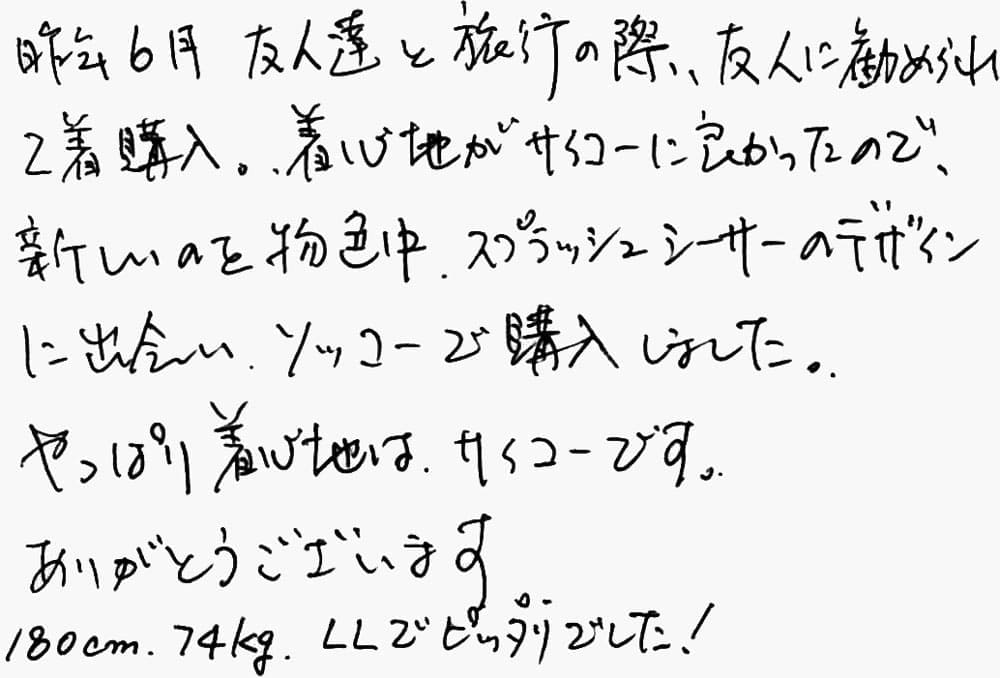 昨年6月 友人達と旅行の際、友人に勧められ
2着購入。着心地がサイコーに良かったので、
新しいのを物色中、スプラッシュシーサーのデザイン
に出会い、ソッコーで購入しました。
やっぱり着心地は、サイコーです。
ありがとうございます
180cm. 74kg. LLでピッタリでした!